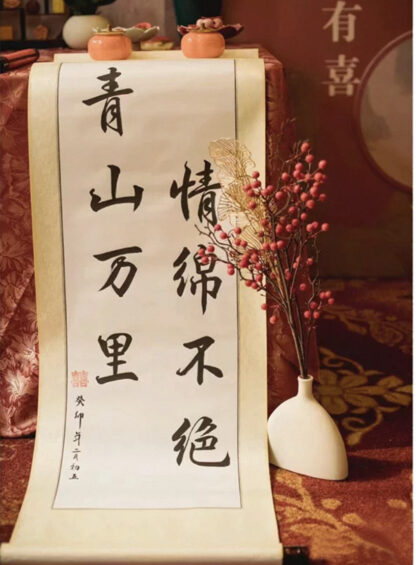 有喜
青山万里
情绵不绝
囍
癸卯年二月初五